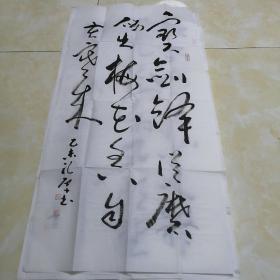 寶劍鋒從磨
礪出梅花香自
苦寒來
乙未
书